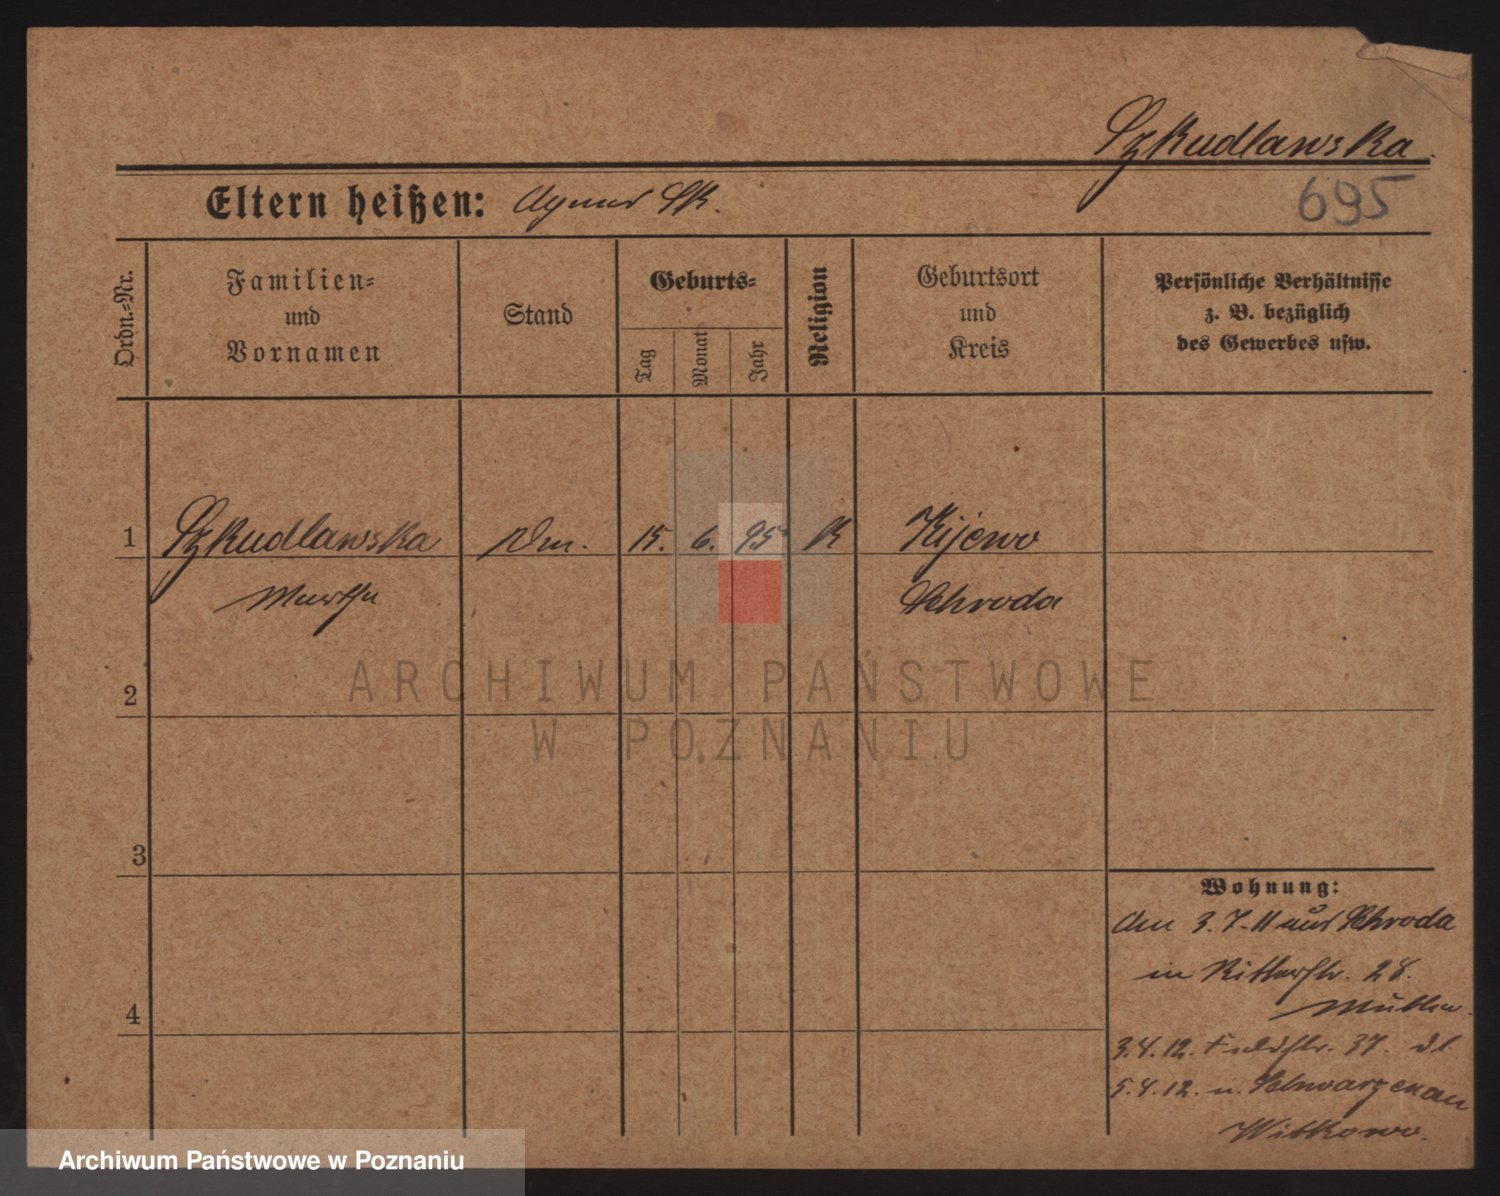 Szkudlawska.
Eltern heißen: Agnes Sk.
695
Ordn.-Nr.
Familien-
und
Vornamen
Stand
Geburts-
Tag
Monat
Jahr
Religion
Geburtsort
und
Kreis
Persönliche Verhältnisse
z. B. bezüglich
des Gewerbes usw.
1 Szkudlawska 15. 6. 95 K Kijewo
Martha Schroda
ARCHIWUM PAŃSTWOWE
W POZNANIU
2
3
4
Wohnung:
Am 3.7.11 aus Schroda
in Ritterstr. 28.
3.4.12. Feldstr. 37. dl.
5.4.12. n. Schwarzenau
Witkowo.
Archiwum Państwowe w Poznaniu